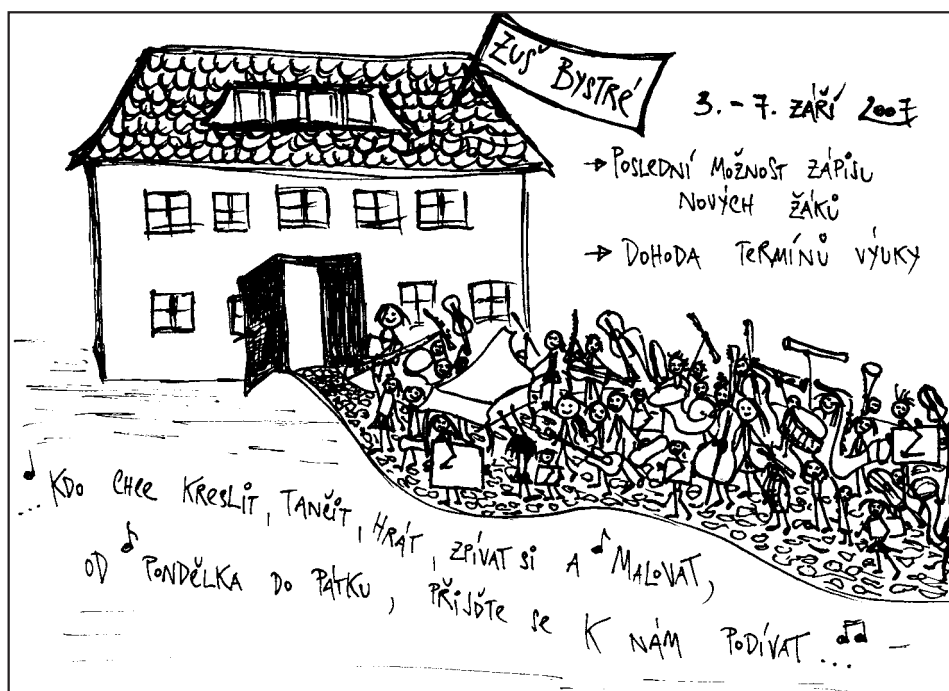 ZUŠ BYSTRÉ
3. – 7. ZÁŘÍ 2007
→ POSLEDNÍ MOŽNOST ZÁPISU
NOVÝCH ŽÁKŮ
→ DOHODA TERMÍNŮ VÝUKY
... KDO CHCE KRESLIT, TANČIT, HRÁT, ZPÍVAT SI A MALOVAT,
OD PONDĚLKA DO PÁTKU, PŘIJĎTE SE K NÁM PODÍVAT ... –